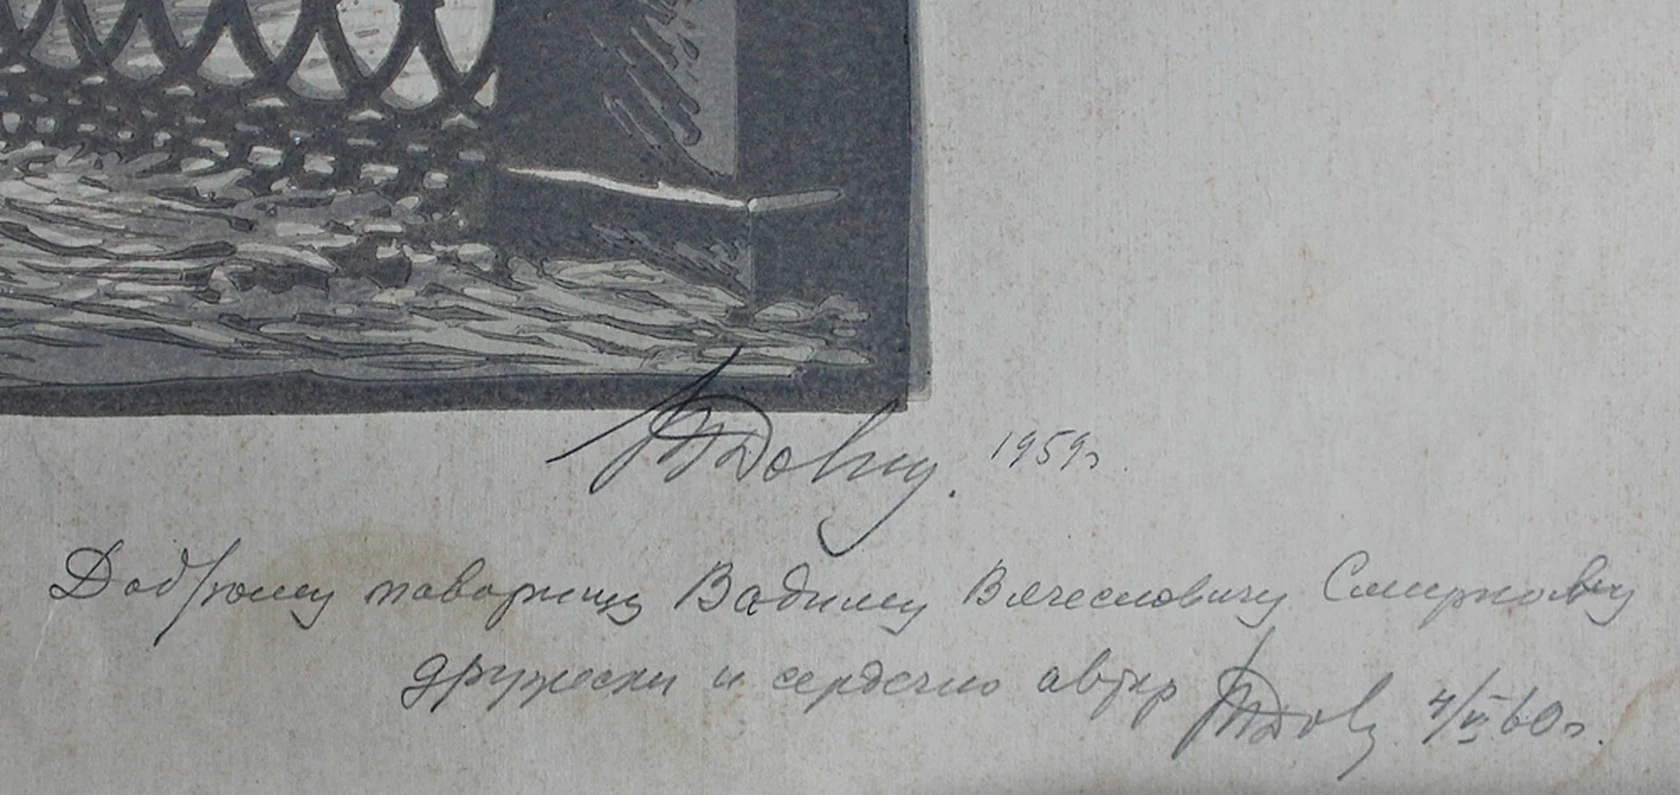 1959г.
Доброму товарищу Вадиму Вячеславовичу Смирнову
дружески и сердечно автор 4/VI 60г.